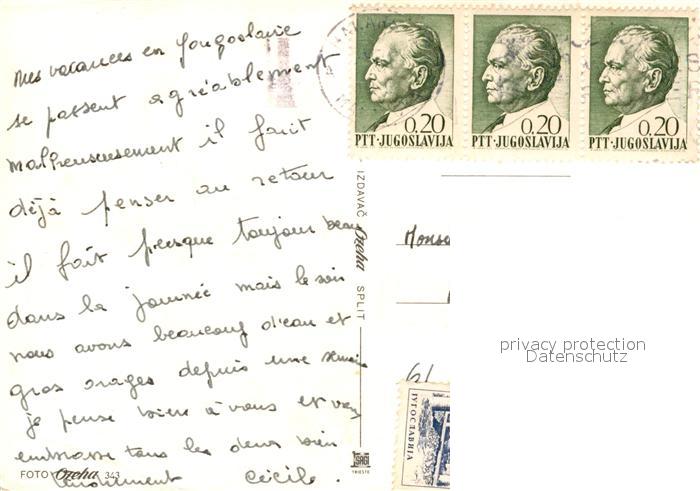 mes vacances en Yougoslavie
se passent agréablement
malheureusement il faut
déjà penser au retour
il fait presque toujour beau
dans la journée mais le soir
nous avons beaucoup d'eau et
gros orages depuis une semain
je pense bien à vous et vous
embrasse tous les deux bien
tendrement Cécile.
FOTO Ozeha 343
IZDAVAČ Ozeha SPLIT
SAGI
TRIESTE
0.20
PTT·JUGOSLAVIJA
0.20
PTT·JUGOSLAVIJA
0.20
PTT·JUGOSLAVIJA
Mons
61
ЈУГОСЛАВИЈА
privacy protection
Datenschutz